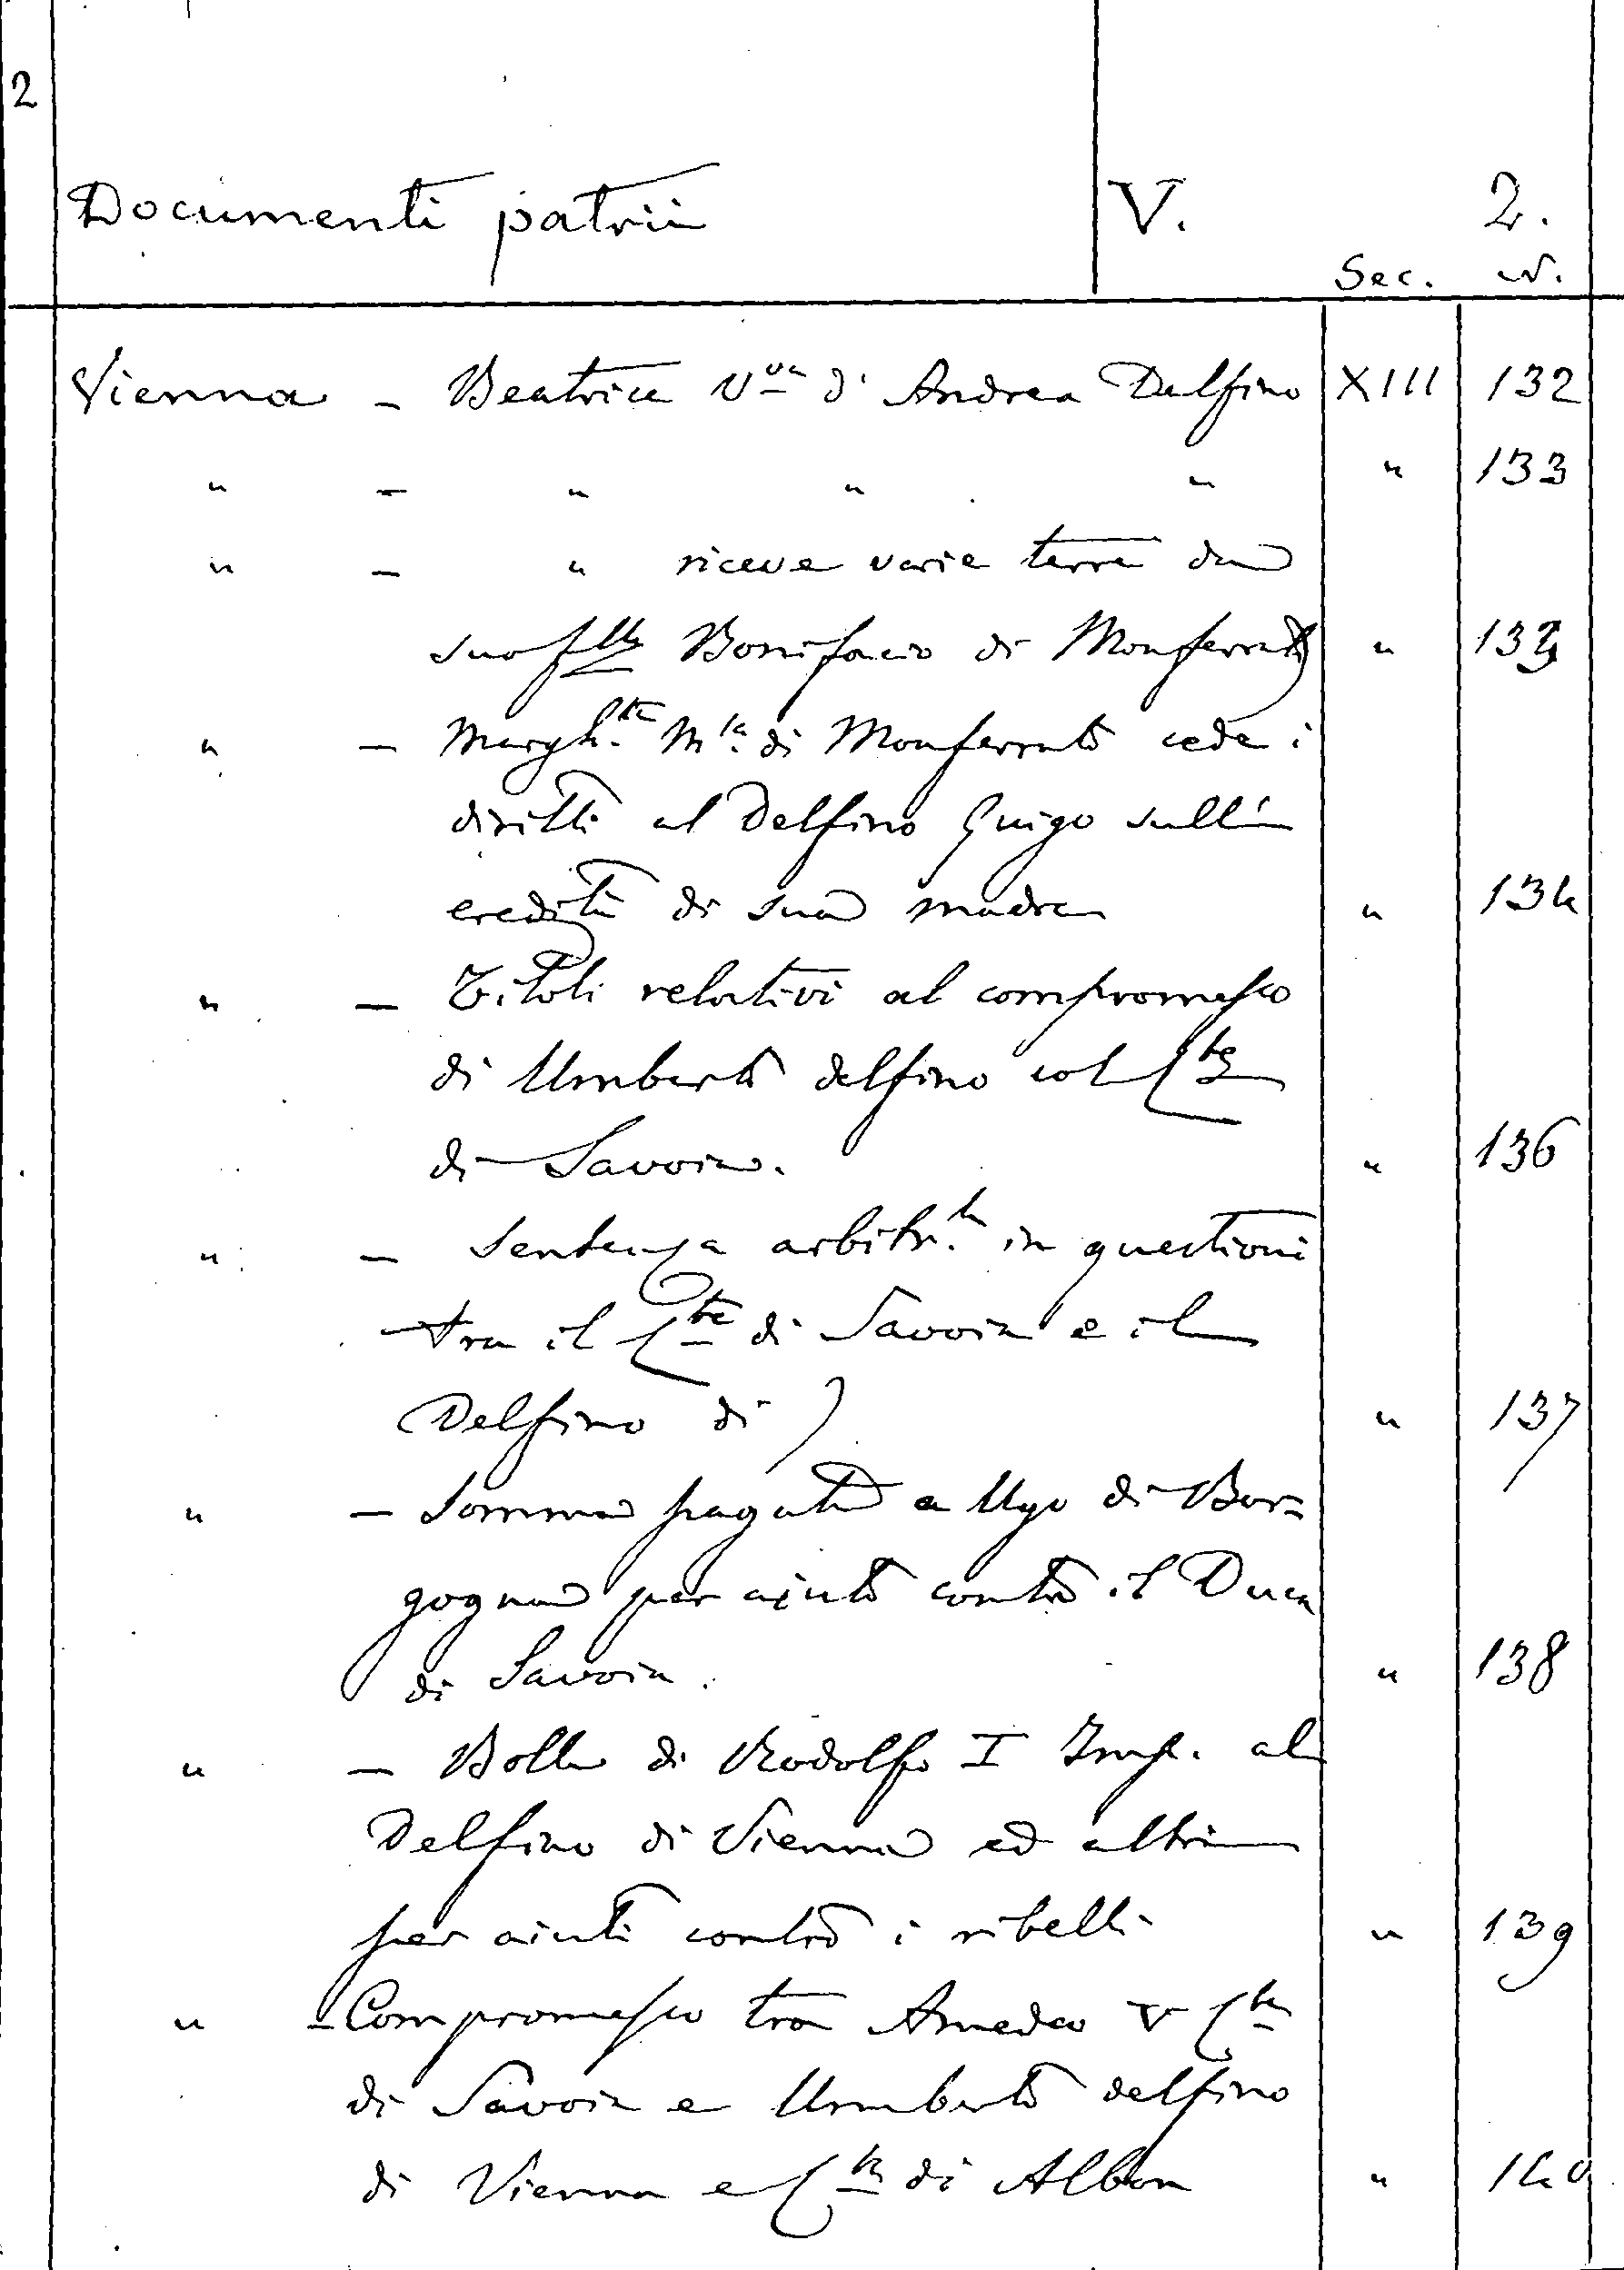 2
Documenti patrii V. 2.
Sec. N.
Vienna - Beatrice V.va d'Andrea Delfino XIII 132
" - " " " " 133
" - " riceve varie terre da
suo f.llo Bonifacio di Monferrato " 133
" - Margh.ta M.sa di Monferrato cede i
diritti al Delfino Guigo sull'
eredità di sua madre " 134
" - Titoli relativi al compromesso
di Umberto delfino col C.te
di Savoia. " 136
" - Sentenza arbitr.le in questioni
tra il C.te di Savoia e il
Delfino di) " 137
" - Somma pagata a Ugo di Bor=
gogna per ajuto contro il Duca
di Savoia. " 138
" - Bolla di Rodolfo I Imp. al
Delfino di Vienna ed altri
per aiuti contro i ribelli " 139
" - Compromesso tra Amedeo V C.te
di Savoia e Umberto delfino
di Vienna e C.te di Albon " 140